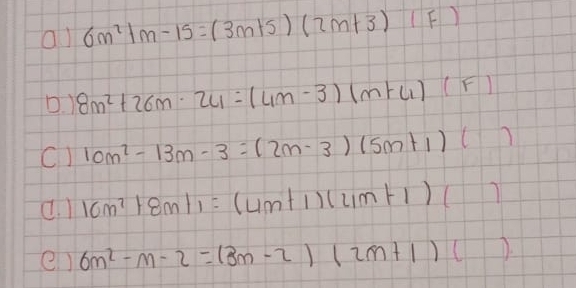 a) 6m²+m-15=(3m+5)(2m+3) (F)
b.) 8m²+26m-24=(4m-3)(m+4) (F)
c) 10m²-13m-3=(2m-3)(5m+1) ( )
d.) 16m²+8m+1=(4m+1)(4m+1) ( )
e) 6m²-m-2=(3m-2)(2m+1) ( )